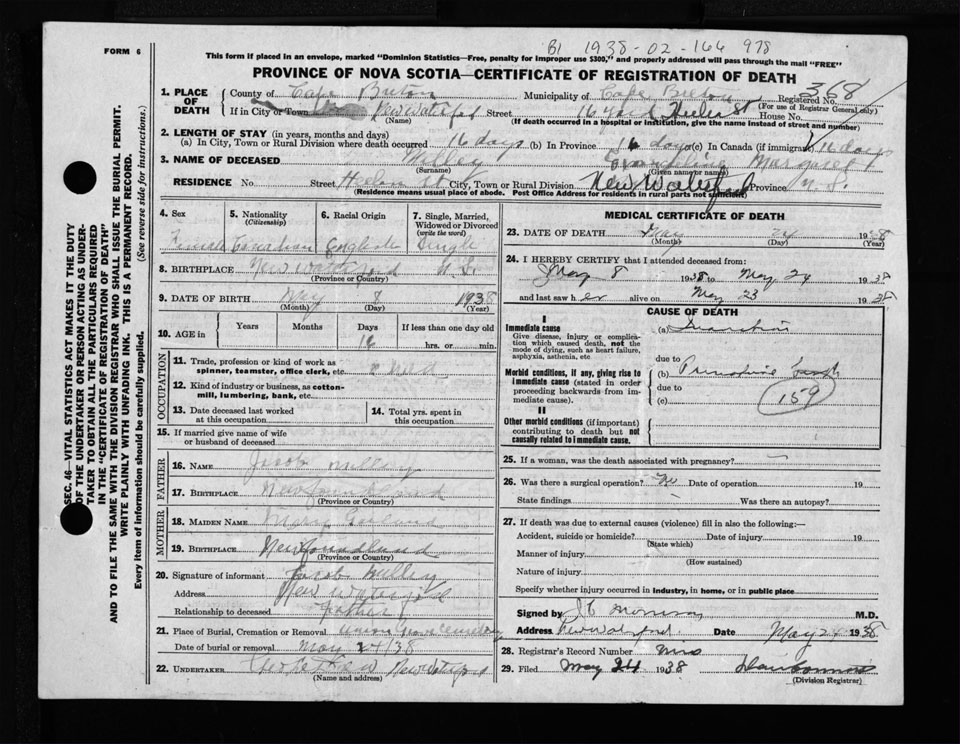 B1 1938-02-166 978
FORM 6
This form if placed in an envelope, marked "Dominion Statistics—Free, penalty for improper use $300," and properly addressed will pass through the mail "FREE"
PROVINCE OF NOVA SCOTIA—CERTIFICATE OF REGISTRATION OF DEATH
368
SEC. 46—VITAL STATISTICS ACT MAKES IT THE DUTY
OF THE UNDERTAKER OR PERSON ACTING AS UNDER-
TAKER TO OBTAIN ALL THE PARTICULARS REQUIRED
IN THE "CERTIFICATE OF REGISTRATION OF DEATH"
AND TO FILE THE SAME WITH THE DIVISION REGISTRAR WHO SHALL ISSUE THE BURIAL PERMIT.
WRITE PLAINLY WITH UNFADING INK. THIS IS A PERMANENT RECORD.
Every item of information should be carefully supplied. (See reverse side for instructions.)
1. PLACE OF DEATH
County of Cape Breton Municipality of Cape Breton Registered No.
(For use of Registrar General only)
If in City or Town New Waterford Street House No.
(Name) (If death occurred in a hospital or institution, give the name instead of street and number)
2. LENGTH OF STAY (in years, months and days)
(a) In City, Town or Rural Division where death occurred 16 days (b) In Province 16 days (c) In Canada (if immigrant) 16 days
3. NAME OF DECEASED Margaret
(Surname) (Given name or names)
RESIDENCE No. Street City, Town or Rural Division New Waterford Province N.S.
(Residence means usual place of abode. Post Office Address for residents in rural parts not sufficient)
4. Sex 5. Nationality (Citizenship) 6. Racial Origin 7. Single, Married, Widowed or Divorced (write the word)
Female Canadian English Single
8. BIRTHPLACE New Waterford N.S.
(Province or Country)
9. DATE OF BIRTH May 8 1938
(Month) (Day) (Year)
10. AGE in Years Months Days If less than one day
16 hrs. or min.
OCCUPATION
11. Trade, profession or kind of work as spinner, teamster, office clerk, etc.
12. Kind of industry or business, as cotton-mill, lumbering, bank, etc.
13. Date deceased last worked at this occupation
14. Total yrs. spent in this occupation
15. If married give name of wife or husband of deceased
FATHER
16. NAME Jacob
17. BIRTHPLACE Newfoundland
(Province or Country)
MOTHER
18. MAIDEN NAME Mary
19. BIRTHPLACE Newfoundland
(Province or Country)
20. Signature of informant Jacob
Address New Waterford
Relationship to deceased Father
21. Place of Burial, Cremation or Removal Cemetery
Date of burial or removal May 24/38
22. UNDERTAKER New Waterford
(Name and address)
MEDICAL CERTIFICATE OF DEATH
23. DATE OF DEATH May 24 1938
(Month) (Day) (Year)
24. I HEREBY CERTIFY that I attended deceased from:
May 8 1938 to May 24 1938
and last saw her alive on May 23 1938
CAUSE OF DEATH
I
Immediate cause (a) Inanition
Give disease, injury or complication which caused death, not the mode of dying, such as heart failure, asphyxia, asthenia, etc.
due to
Morbid conditions, if any, giving rise to immediate cause (stated in order proceeding backwards from immediate cause).
(b) Premature birth
due to
(c) 159
II
Other morbid conditions (if important) contributing to death but not causally related to immediate cause.
25. If a woman, was the death associated with pregnancy?
26. Was there a surgical operation? No Date of operation 19
State findings Was there an autopsy?
27. If death was due to external causes (violence) fill in also the following:—
Accident, suicide or homicide? Date of injury 19
(State which)
Manner of injury
(How sustained)
Nature of injury
Specify whether injury occurred in Industry, in home, or in public place
Signed by M.D.
Address New Waterford Date May 24 1938
28. Registrar's Record Number
29. Filed May 24 1938
(Division Registrar)